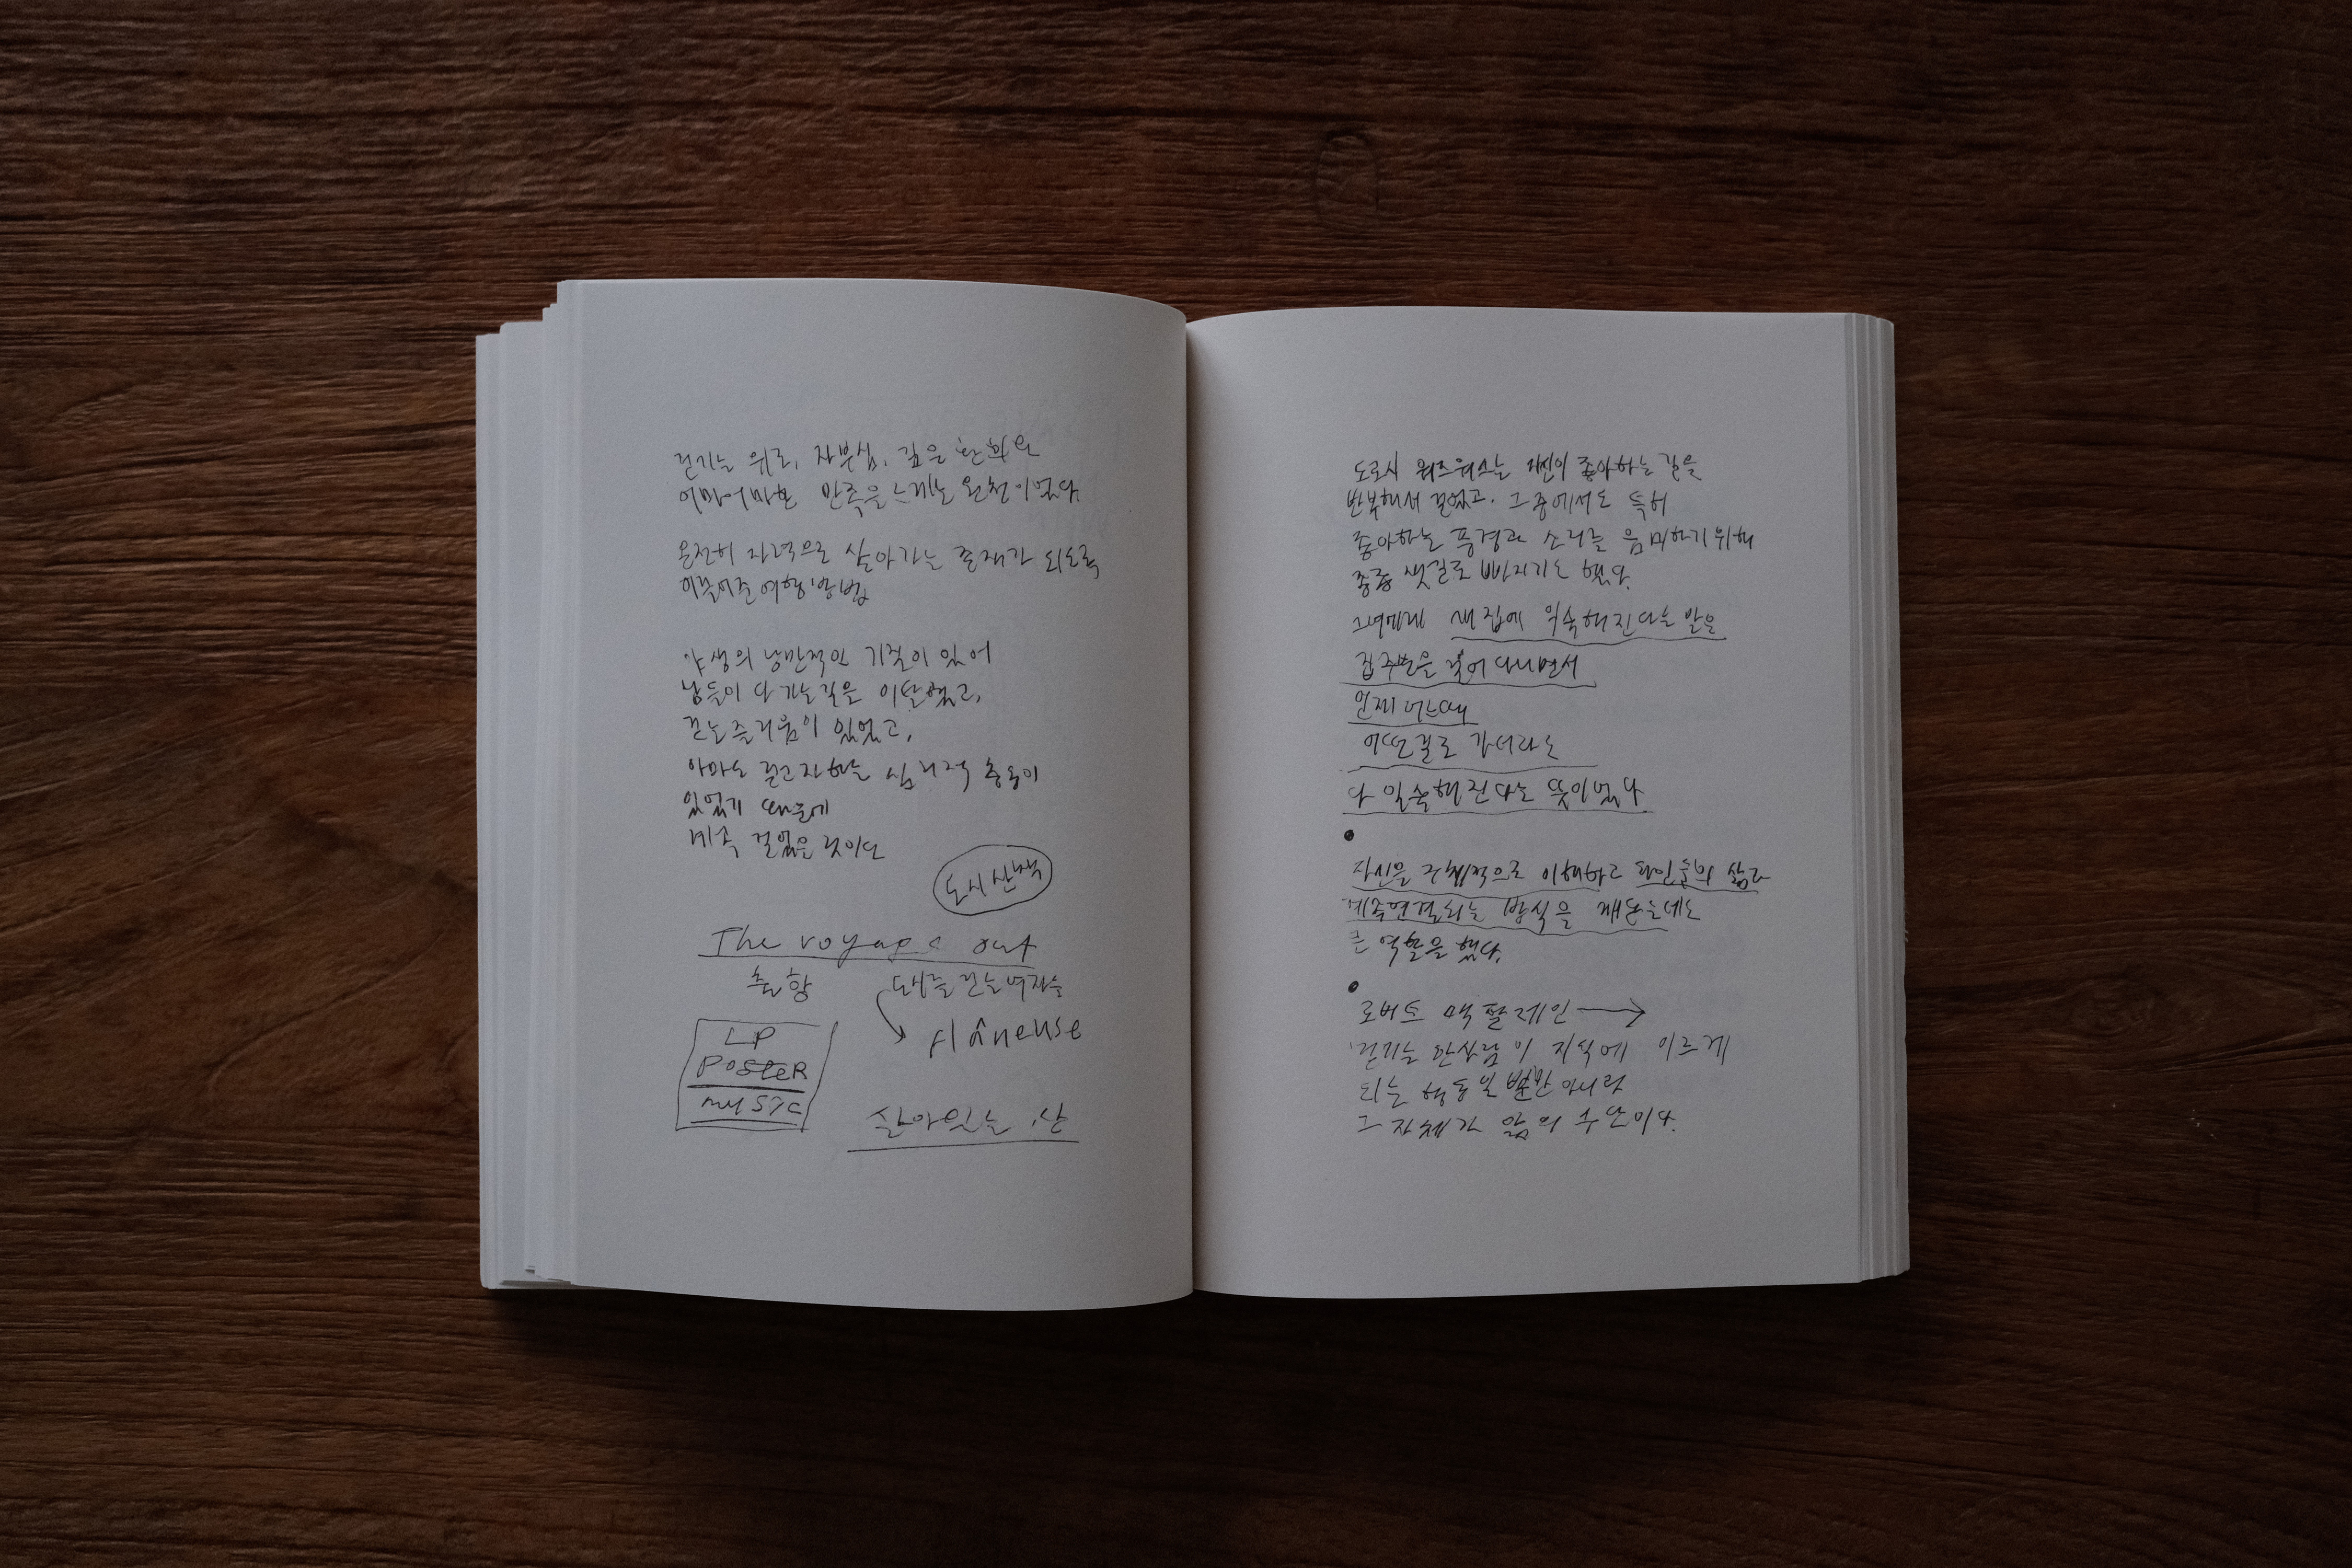 걷기는 위로, 자부심, 깊은 환희와
어마어마한 만족을 느끼는 원천이었다
온전히 자력으로 살아가는 존재가 되도록
이끌어준 여행방법
야생의 낭만적인 기질이 있어
남들이 다 가는길을 이탈했고,
걷는즐거움이 있었고,
아마도 걷고자하는 심리적 충동이
있었기 때문에
계속 걸었을 것이다
도시산책
The voyage out
출항
도시를 걷는여자들
flâneuse
LP
POSTER
MUSIC
살아있는 산
도로시 워즈워스는 자신이 좋아하는 길을
반복해서 걸었고. 그 중에서도 특히
좋아하는 풍경과 소리를 음미하기위해
종종 샛길로 빠지기도 했다.
그녀에게 새 집에 익숙해진다는 말은
집주변을 걸어 다니면서
언제 어느때
어떤길로 가더라도
다 익숙해진다는 뜻이었다
자신을 주체적으로 이해하고 타인들의 삶과
계속연결되는 방식을 깨닫는데도
큰 역할을 했다.
로버트 맥팔레인 →
걷기는 한사람이 지식에 이르게
되는 행동일 뿐만 아니라
그 자체가 앎의 수단이다.